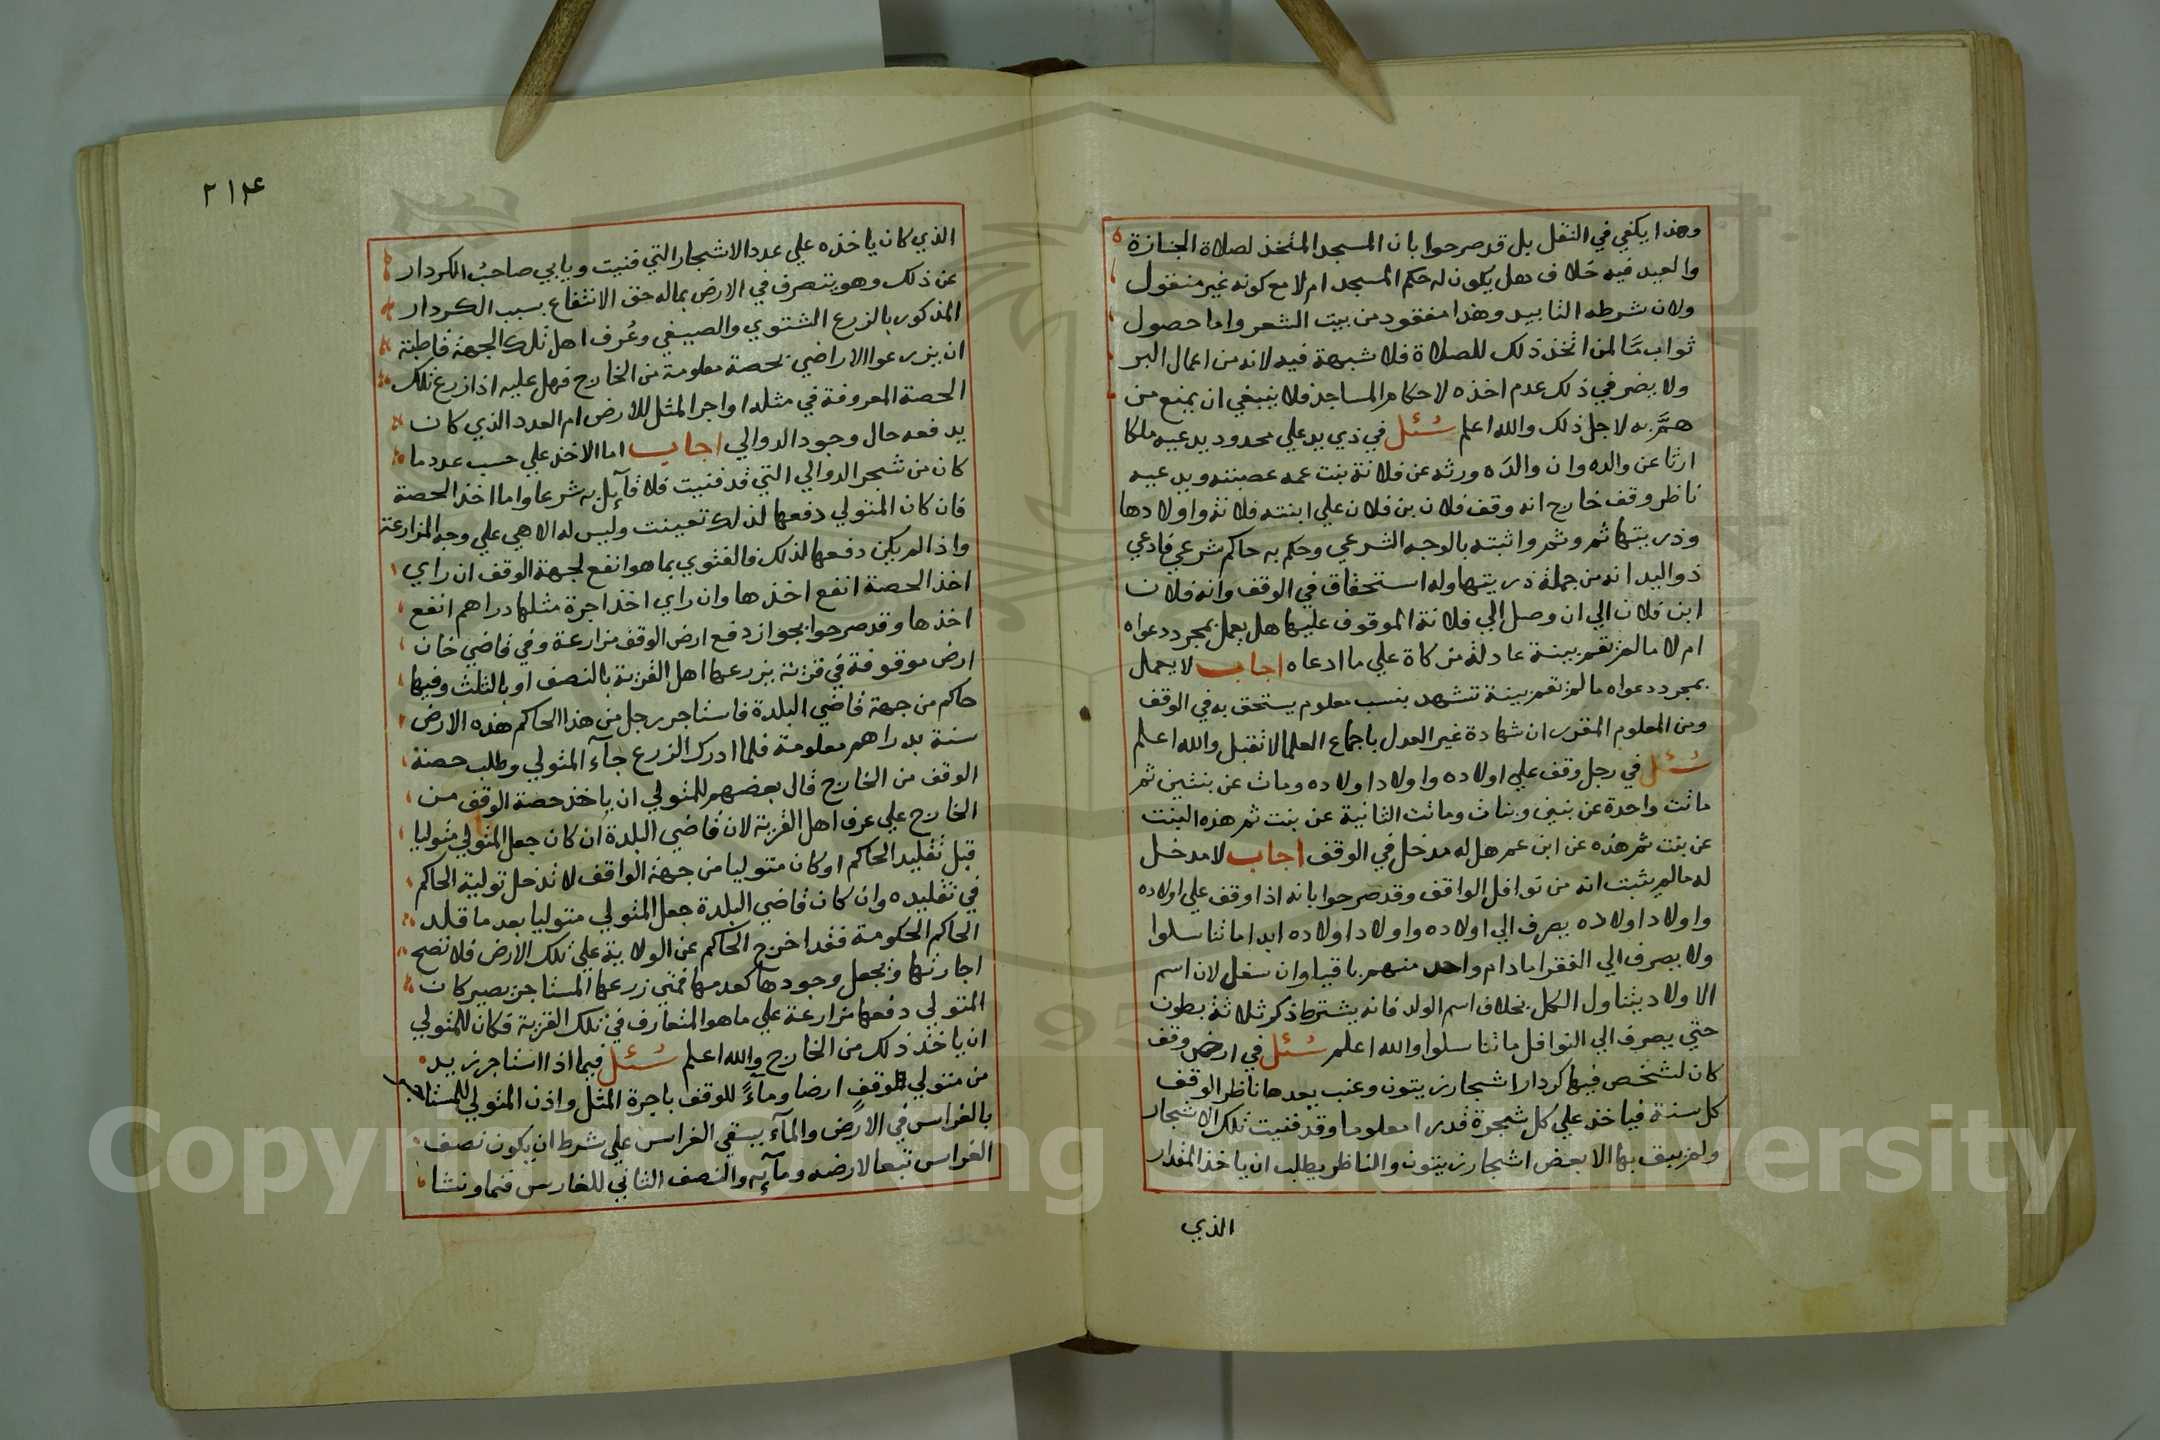 وهذا يكفي في النقل بل قد صرحوا بان المسجد المتخذ لصلاة الجنازة
والعيد فيه خلاف هل يكون له حكم المسجد ام لا مع كونه غير منقول
ولان شرطه التابيد وهذا مفقود من بيت الشعر واما حصول
ثواب مّا لمن اتخذ ذلك للصلاة فلا شبهة فيه لانه من اعمال البر
ولا يضر في ذلك عدم اخذه لاحكام المساجد فلا ينبغي ان يمنع من
همّ به لاجل ذلك والله اعلم سُئل في ذي يد علي محدود يدعيه ملكا
ارثا عن والده وان والدَه ورثه عن فلانة بنت عمه عصبته ويدعيه
ناظر وقف خارج انه وقف فلان بن فلان علي ابنته فلانة واولادها
وذريتها ثم وثم واثبته بالوجه الشرعي وحكم به حاكم شرعي فادعي
ذو اليد انه من جملة ذريتها وله استحقاق في الوقف وانه فلان
ابن فلان الي ان وصل الي فلانة الموقوف عليها هل يعمل بمجرد دعواه
ام لا ما لم تقم بينة عادلة مزكاة علي ما ادعاه اجاب لا يعمل
بمجرد دعواه ما لم تقم بينة تشهد بنسب معلوم يستحق به في الوقف
ومن المعلوم المقرر ان شهادة غير العدل باجماع العلما لا تقبل والله اعلم
سُئل في رجل وقف علي اولاده واولاد اولاده ومات عن بنتين ثم
ماتت واحدة عن بنين وبنات وماتت الثانية عن بنت ثم هذه البنت
عن بنت ثم هذه عن ابن عم هل له مدخل في الوقف اجاب لا مدخل
له ما لم يثبت انه من نوافل الواقف وقد صرحوا بانه اذا وقف علي اولاده
واولاد اولاده يصرف الي اولاده واولاد اولاده ابدا ما تناسلوا
ولا يصرف الي الفقرا ما دام واحد منهم باقيا وان سفل لان اسم
الاولاد يتناول الكل بخلاف اسم الولد فانه يشترط ذكر ثلاثة بطون
حتي يصرف الي النوافل ما تناسلوا والله اعلم سُئل في ارض وقف
كان لشخص فيها كردار اشجار زيتون وعنب يعدها ناظر الوقف
كل سنة فياخذ علي كل شجرة قدرا معلوما وقد فنيت تلك الاشجار
ولم يبق بها الا بعض اشجار زيتون والناظر يطلب ان ياخذ المقدار
الذي
٢١٤
الذي كان ياخذه علي عدد الاشجار التي فنيت ويابي صاحبُ الكردار
عن ذلك وهو يتصرف في الارض بماله حق الانتفاع بسبب الكردار
المذكور بالزرع الشتوي والصيفي وعُرف اهل تلك الجهة قاطبة
ان يزرعوا الاراضي بحصة معلومة من الخارج فهل عليه اذا زرع تلك
الحصة المعروفة في مثلها او اجر المثل للارض ام العدد الذي كان
يدفعه حال وجود الدوالي اجاب اما الاخذ علي حسب عدد ما
كان من شجر الدوالي التي قد فنيت فلا قآيل به شرعا واما اخذ الحصة
فان كان المتولي دفعها لذلك تعينت وليس له الا هي علي وجه المزارعة
واذا لم يكن دفعها لذلك فالفتوي بما هو انفع لجهة الوقف ان راي
اخذ الحصة انفع اخذها وان راي اخذ اجرة مثلها دراهم انفع
اخذها وقد صرحوا بجواز دفع ارض الوقف مزارعة وفي قاضي خان
ارض موقوفة في قرية يزرعها اهل القرية بالنصف او بالثلث وفيها
حاكم من جهة قاضي البلدة فاستاجر رجل من هذا الحاكم هذه الارض
سنة بدراهم معلومة فلما ادرك الزرع جآء المتولي وطلب حصة
الوقف من الخارج قال بعضهم للمتولي ان ياخذ حصة الوقف من
الخارج علي عرف اهل القرية لان قاضي البلدة ان كان جعل المتولي متوليا
قبل تقليد الحاكم او كان متوليا من جهة الواقف لا تدخل تولية الحاكم
في تقليده وان كان قاضي البلدة جعل المتولي متوليا بعد ما قلد
الحاكم الحكومة فقد اخرج الحاكم عن الولاية علي تلك الارض فلا تصح
اجارتها ويجعل وجودها كعدمها فمتي زرعها المستاجر يصير كان
المتولي دفعها مزارعة علي ما هو المتعارف في تلك القرية فكان للمتولي
ان ياخذ ذلك من الخارج والله اعلم سُئل فيما اذا استاجر زيد
من متولي الوقف ارضا ومآءً للوقف باجرة المثل واذن المتولي للمستاجر
بالغراس في الارض والمآء يسقي الغراس علي شرط ان يكون نصف
الغراس تبعا لارضه ومآيه والنصف الثاني للغارس فنما ونشا